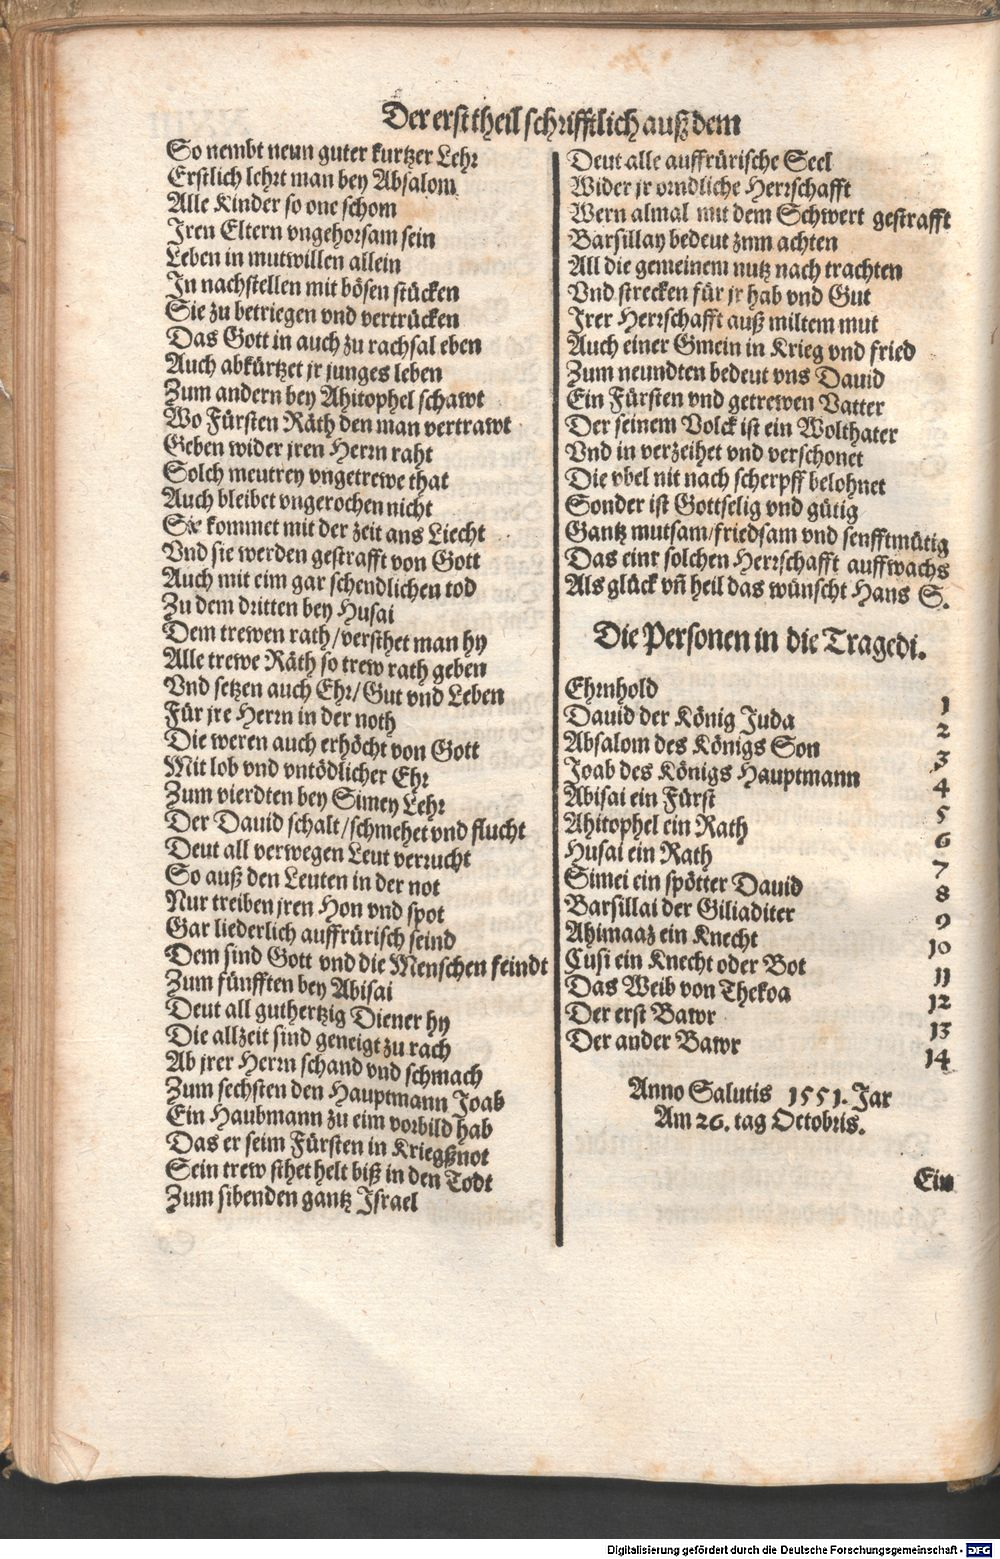 Der erst theil schrifftlich auß dem
So nembt neun guter kurtzer Lehr
Erstlich lehrt man bey Absalom
Alle Kinder so one schom
Iren Eltern vngehorsam sein
Leben in mutwillen allein
In nachstellen mit bösen stücken
Sie zu betriegen vnd vertrücken
Das Gott in auch zu rachsal eben
Auch abkürtzet jr junges leben
Zum andern bey Ahitophel schawt
Wo Fürsten Räth den man vertrawt
Geben wider jren Herrn raht
Solch meutrey vngetrewe that
Auch bleibet vngerochen nicht
Sie kommet mit der zeit ans Liecht
Vnd sie werden gestrafft von Gott
Auch mit eim gar schendlichen tod
Zu dem dritten bey Husai
Dem trewen rath/versthet man hy
Alle trewe Räth so trew rath geben
Vnd setzen auch Ehr/Gut vnd Leben
Für jre Herrn in der noth
Die weren auch erhöcht von Gott
Mit lob vnd vntödlicher Ehr
Zum vierdten bey Simey Lehr
Der Dauid schalt/schmehet vnd flucht
Deut all verwegen Leut verrucht
So auß den Leuten in der not
Nur treiben jren Hon vnd spot
Gar liederlich auffrürisch seind
Dem sind Gott vnd die Menschen feindt
Zum fünfften bey Abisai
Deut all guthertzig Diener hy
Die allzeit sind geneigt zu rach
Ab jrer Herrn schand vnd schmach
Zum sechsten den Hauptmann Joab
Ein Haubmann zu eim vorbild hab
Das er seim Fürsten in Kriegßnot
Sein trew sthet helt biß in den Todt
Zum sibenden gantz Israel
Deut alle auffrürische Seel
Wider jr orndliche Herrschafft
Wern almal mit dem Schwert gestrafft
Barsillay bedeut znm achten
All die gemeinem nutz nach trachten
Vnd strecken für jr hab vnd Gut
Irer Herrschafft auß miltem mut
Auch einer Gmein in Krieg vnd fried
Zum neundten bedeut vns Dauid
Ein Fürsten vnd getrewen Vatter
Der seinem Volck ist ein Wolthater
Vnd in verzeihet vnd verschonet
Die vbel nit nach scherpff belohnet
Sonder ist Gottselig vnd gütig
Gantz mutsam/friedsam vnd senfftmütig
Das einr solchen Herrschafft auffwachs
Als glück vñ heil das wünscht Hans S.
Die Personen in die Tragedi.
Ehrnhold 1
Dauid der König Juda 2
Absalom des Königs Son 3
Joab des Königs Hauptmann 4
Abisai ein Fürst 5
Ahitophel ein Rath 6
Husai ein Rath 7
Simei ein spötter Dauid 8
Barsillai der Giliaditer 9
Ahimaaz ein Knecht 10
Cusi ein Knecht oder Bot 11
Das Weib von Thekoa 12
Der erst Bawr 13
Der ander Bawr 14
Anno Salutis 1551. Jar
Am 26. tag Octobris.
Ein
Digitalisierung gefördert durch die Deutsche Forschungsgemeinschaft - DFG